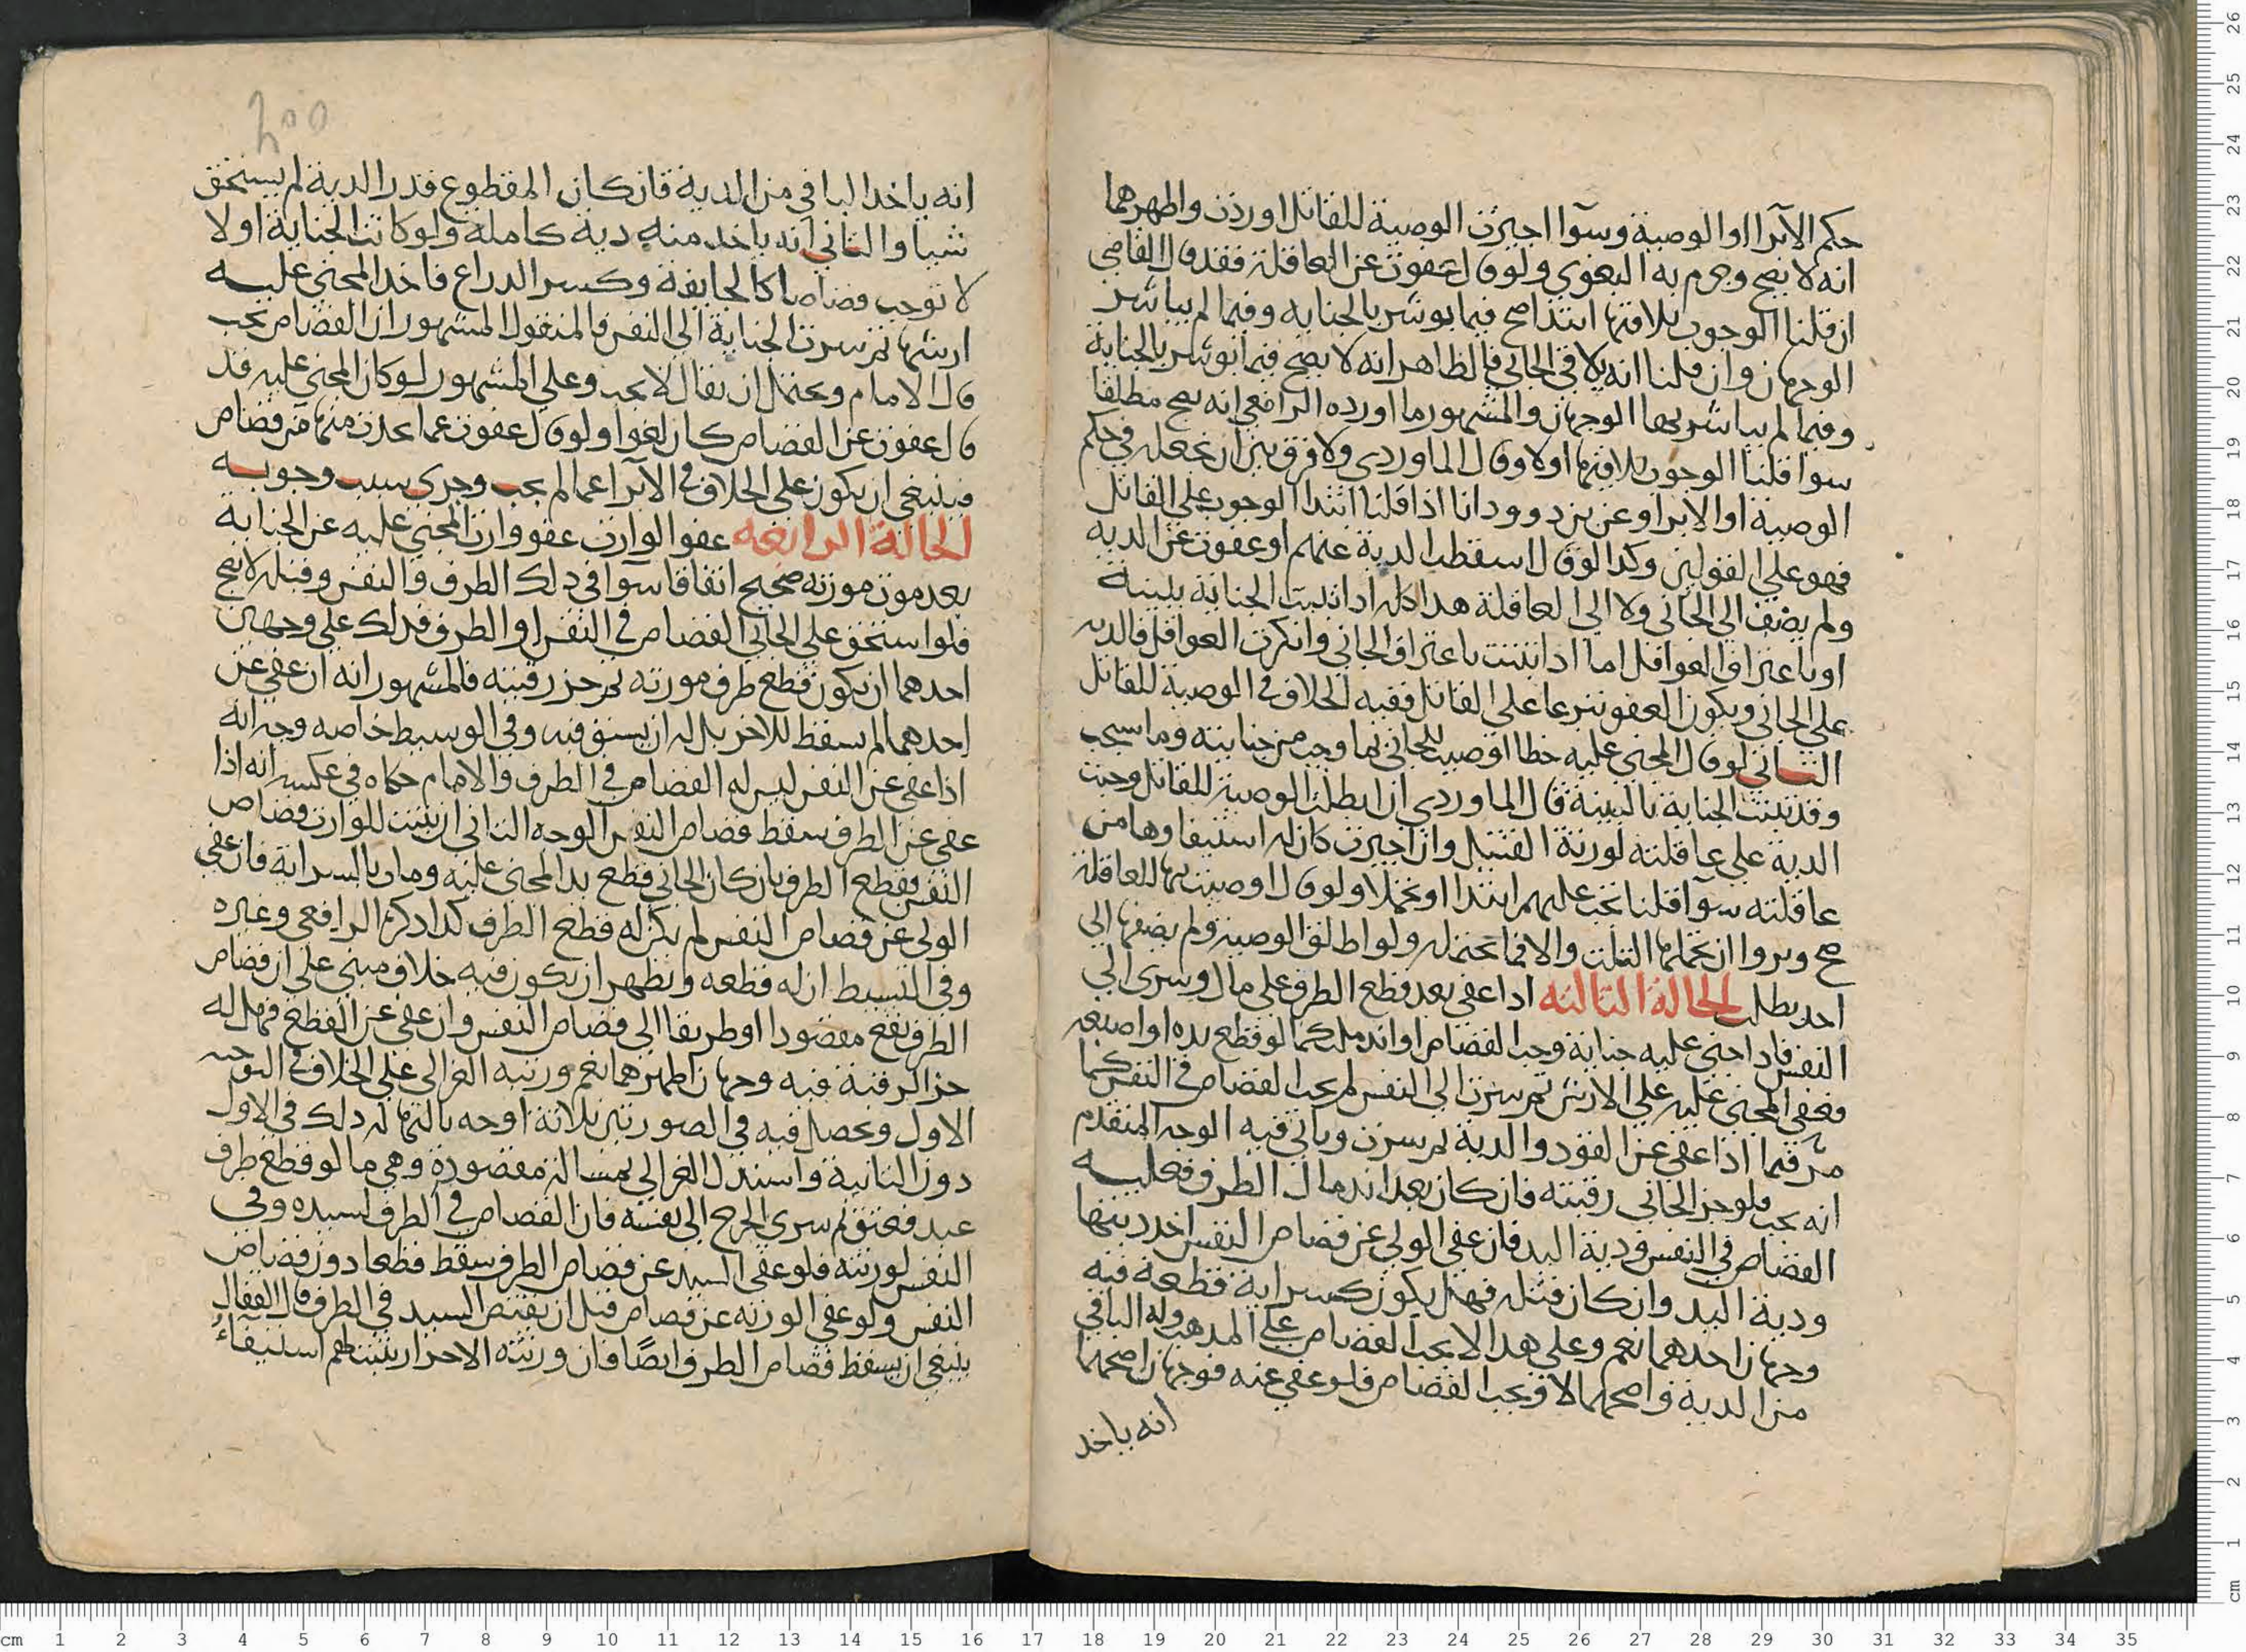 حكم الابرا او الوصية وسوآ اجيزت الوصية للقاتل او ردت واظهرهما
انه لا يصح وجزم به البغوي ولو قال عفوت عن العاقلة فقد قال القاضي
ان قلنا الوجوب يلاقيها ابتدا صح فيما يوشر بالجنايه وفيما لم يباشر
الوجهان وان قلنا انه يلاقى الجاني فالظاهر انه لا يصح فيما توشر بالجناية
وفيما لم يباشر بها الوجهان والمشهور ما اورده الرافعي انه يصح مطلقا
سوا قلنا الوجوب يلاقيهم اولا وقال الماوردي ولا فرق بين ان نجعله في حكم
الوصية او الابرا وعن يزد وودانا اذا قلنا ابتدا الوجوب على القاتل
فهو على القولين وكذا لو قال اسقطت الدية عنهم او عفوت عن الدية
ولم يضف الى الجاني ولا الى العاقلة هذا كله اذا ثبتت الجناية ببينة
او باعتراف العواقل اما اذا ثبتت باعتراف الجاني وانكرت العواقل فالديه
على الجاني ويكون العفو تبرعا على القاتل ففيه الخلاف في الوصية للقاتل
الثاني لو قال المجني عليه خطا اوصيت للجاني بما وجب من جنايته وما سيجب
وقد ثبتت الجناية بالبينة قال الماوردي ان ابطلت الوصية للقاتل وجبت
الدية على عاقلته لورثة القتيل وان اجيزت كان له استيفاوها من
عاقلته سوآ قلنا تجب عليهم ابتدا او تحملا ولو قال اوصيت بها للعاقلة
صح وبروا ان تحملها الثلث والا فما تحتمله ولو اطلق الوصية ولم يضفها الى
احد بطلت الحالة الثالثه اذا عفى بعد قطع الطرف على مال وسرى الى
النفس فاذا جنى عليه جناية وجب القصاص او اندملت كما لو قطع يده او اصبعه
فعفى المجنى عليه على الارش ثم سرت الى النفس لم يجب القصاص في النفس كما
مر فيما اذا عفى عن القود والدية ثم سرت وياتي فيه الوجه المتقدم
انه يجب فلو حز الجاني رقبته فان كان بعد اندمال الطرف فعليه
القصاص في النفس ودية اليد فان عفى الولي عن قصاص النفس اخذ ديتها
ودية اليد وان كان قبله فهل يكون كسراية قطعه فيه
وجهان احدهما نعم وعلى هذا لا يجب القصاص على المذهب وله الباقي
من الدية واصحهما لا فيجب القصاص فلو عفى عنه فوجهان اصحهما
انه ياخذ
انه ياخذ الباقي من الدية فان كان المقطوع قدر الدية لم يستحق
شيا والثاني انه ياخذ منه دية كاملة ولو كانت الجناية اولا
لا توجب قصاصا كالجايفة وكسر الذراع فاخذ المجنى عليه
ارشها ثم سرت الجناية الى النفس فالمنقول المشهور ان القصاص يجب
قال الامام ويحتمل ان يقال لا يجب وعلى المشهور لو كان المجني عليه قد
قال عفوت عن القصاص كان لغوا ولو قال عفوت عما يحدث منها من قصاص
فينبغي ان يكون على الخلاف في الابرآ عما لم يجب وجرى سبب وجوبه
الحالة الرابعه عفو الوارث عفو وارث المجني عليه عن الجناية
بعد موت مورثه صحيح اتفاقا سوآ في ذلك الطرف والنفس وقبله لا يصح
فلو استحق على الجاني القصاص في النفس او الطرف فذلك على وجهين
احدهما ان يكون قطع طرف مورثه ثم حز رقبته فالمشهور انه ان عفى عن
احدهما لم يسقط للاخر بل له ان يستوفيه وفي الوسيط خاصه وجه انه
اذا عفى عن النفس ليس له القصاص في الطرف والامام حكاه في عكسه انه اذا
عفى عن الطرف سقط قصاص النفس الوجه الثاني ان يثبت للوارث قصاص
النفس بقطع الطرف بان كان الجاني قطع يد المجني عليه ومات بالسراية فان عفى
الولى عن قصاص النفس لم يكن له قطع الطرف كذا ذكره الرافعى وغيره
وفي البسيط ان له قطعه ويظهر ان يكون فيه خلاف مبنى على ان قصاص
الطرف يقع مقصودا او طريقا الى قصاص النفس وان عفى عن القطع فهل له
حز الرقبة فيه وجهان اظهرهما نعم ورتبه الغزالي على الخلاف في الوجه
الاول وتحصل فيه في الصورتين ثلاثة اوجه ثالثها له ذلك في الاول
دون الثانية واستدل الغزالي بمسالة مقصودة وهي ما لو قطع طرف
عبد فعتق ثم سرى الجرح الى نفسه فان القصاص في الطرف لسيده وفى
النفس لورثته فلو عفى السيد عن قصاص الطرف سقط قطعا دون قصاص
النفس ولو عفى الورثه عن قصاص قبل ان يقتص السيد في الطرف قال القفال
ينبغي ان يسقط قصاص الطرف ايضا فان ورثته الاحرار يثبت لهم استيفآء